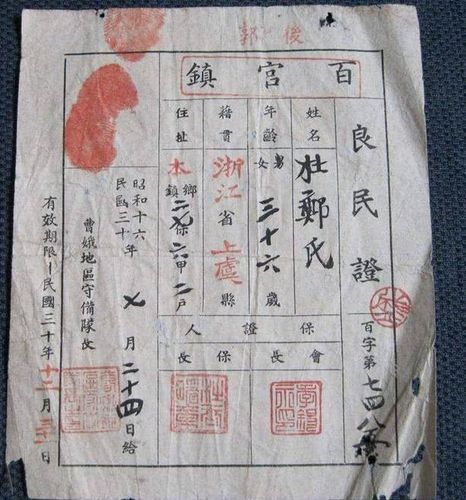 後郭
百官鎮
良民證
百字第七四八
姓名
杜鄭氏
年齡
男女 三十六歲
籍貫
浙江省上虞縣
住址
本鄉鎮 保六甲二戶
保證人
會長
保長
昭和十六
民國三十年 七月二十四日給
曹娥地區守備隊長
有效期限—民國三十年十二月 日